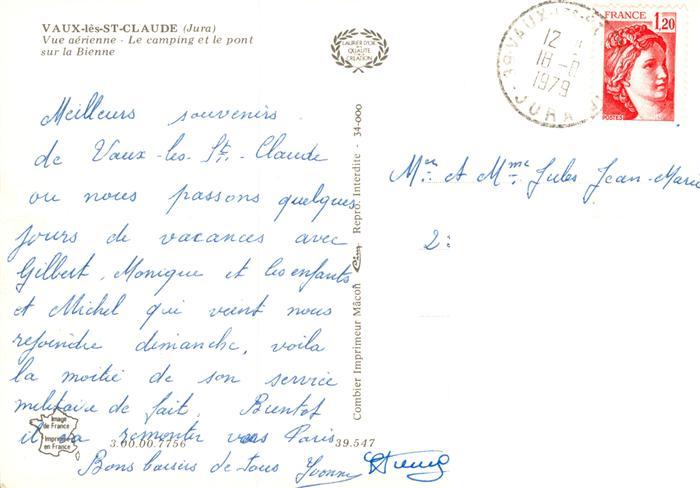 VAUX-lès-ST-CLAUDE (Jura)
Vue aérienne - Le camping et le pont
sur la Bienne
LAURIER D'OR
QUALITÉ
CRÉATION
39 VAUX-LES-ST
12
18-8
1979
JURA
FRANCE
1,20
POSTES
Meilleurs souvenirs
de Vaux-les-St-Claude
ou nous passons quelques
jours de vacances avec
Gilbert, Monique et les enfants
et Michel qui vient nous
rejoindre dimanche, voila
la moitié de son service
militaire de fait. Bientot
il va remonter vers Paris
Bons baisers de tous Yvonne
Mr et Mme Jules Jean-Marie
2:
Combier Imprimeur Mâcon Cim Repro. Interdite - 34-000
Image
de France
Imprimé
en France
3.00.00.7756
39.547